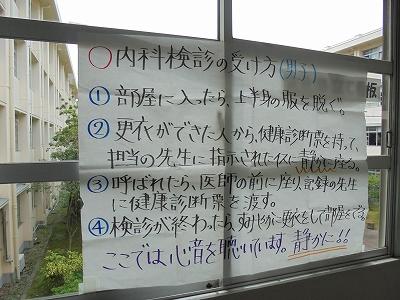 ○内科検診の受け方(男子)
① 部屋に入ったら、上半身の服を脱ぐ。
② 更衣ができた人から、健康診断票を持って、
担当の先生に指示されたイスに静かに座る。
③ 呼ばれたら、医師の前に座り、記録の先生
に健康診断票を渡す。
④ 検診が終わったら、すみやかに更衣をして部屋を出る
ここでは心音を聴いています。静かに!!
板